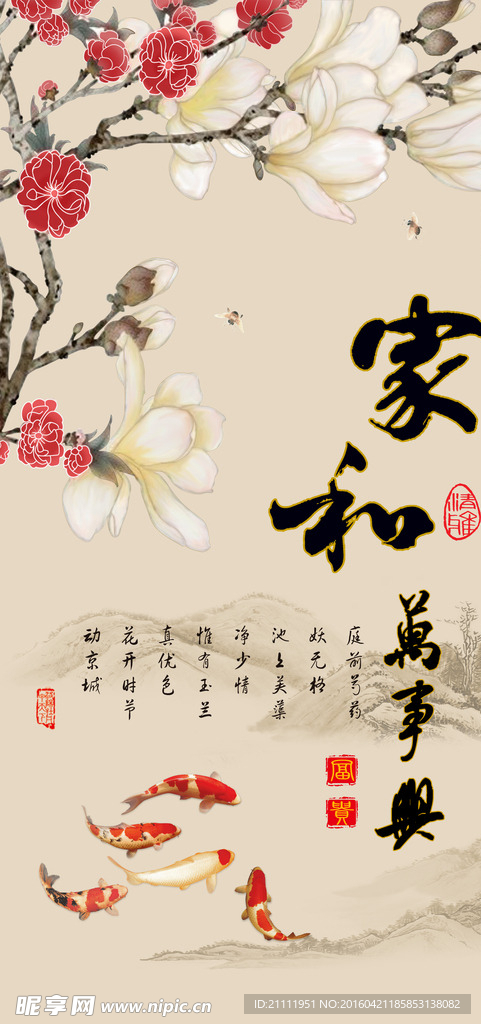 家
和
萬事興
清雅
富
貴
庭前芍药
妖无格
池上美蕖
净少情
惟有玉兰
真优色
花开时节
动京城
昵享网 www.nipic.cn
ID:21111951 NO:20160421185853138082